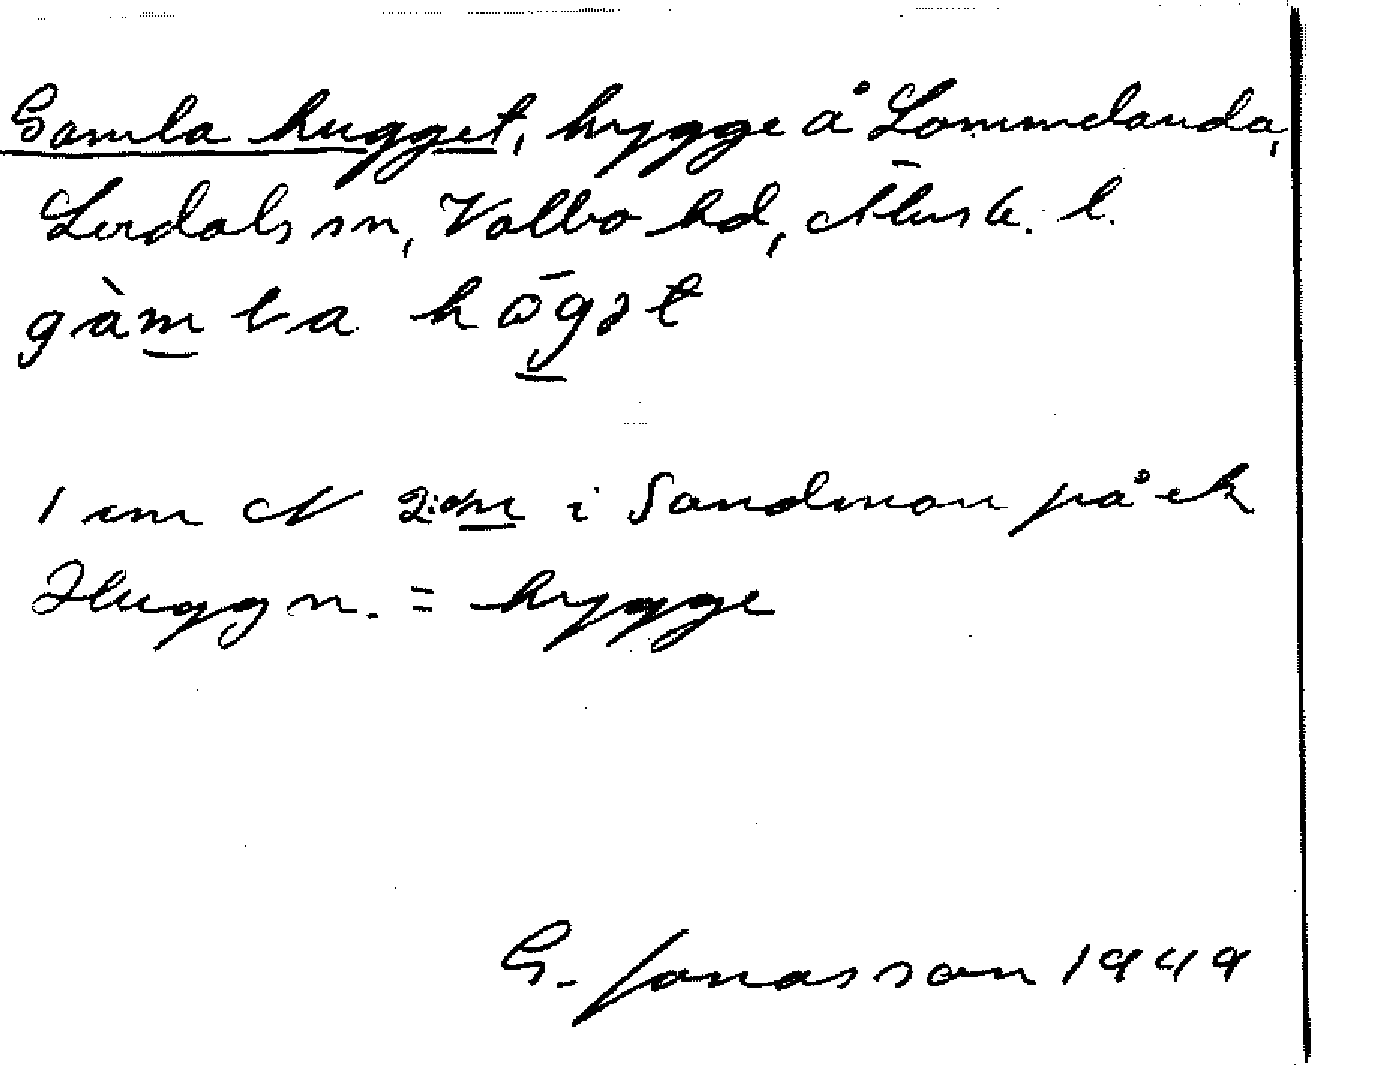 Gamla hugget, hygge å Lommelanda,
Lerdals sn, Valbo hd, Älvsb. l.
gàmla hōgət
1 cm N 2:a n i Sandmon på ek
Huggn. = hygge
G. Jonasson 1949